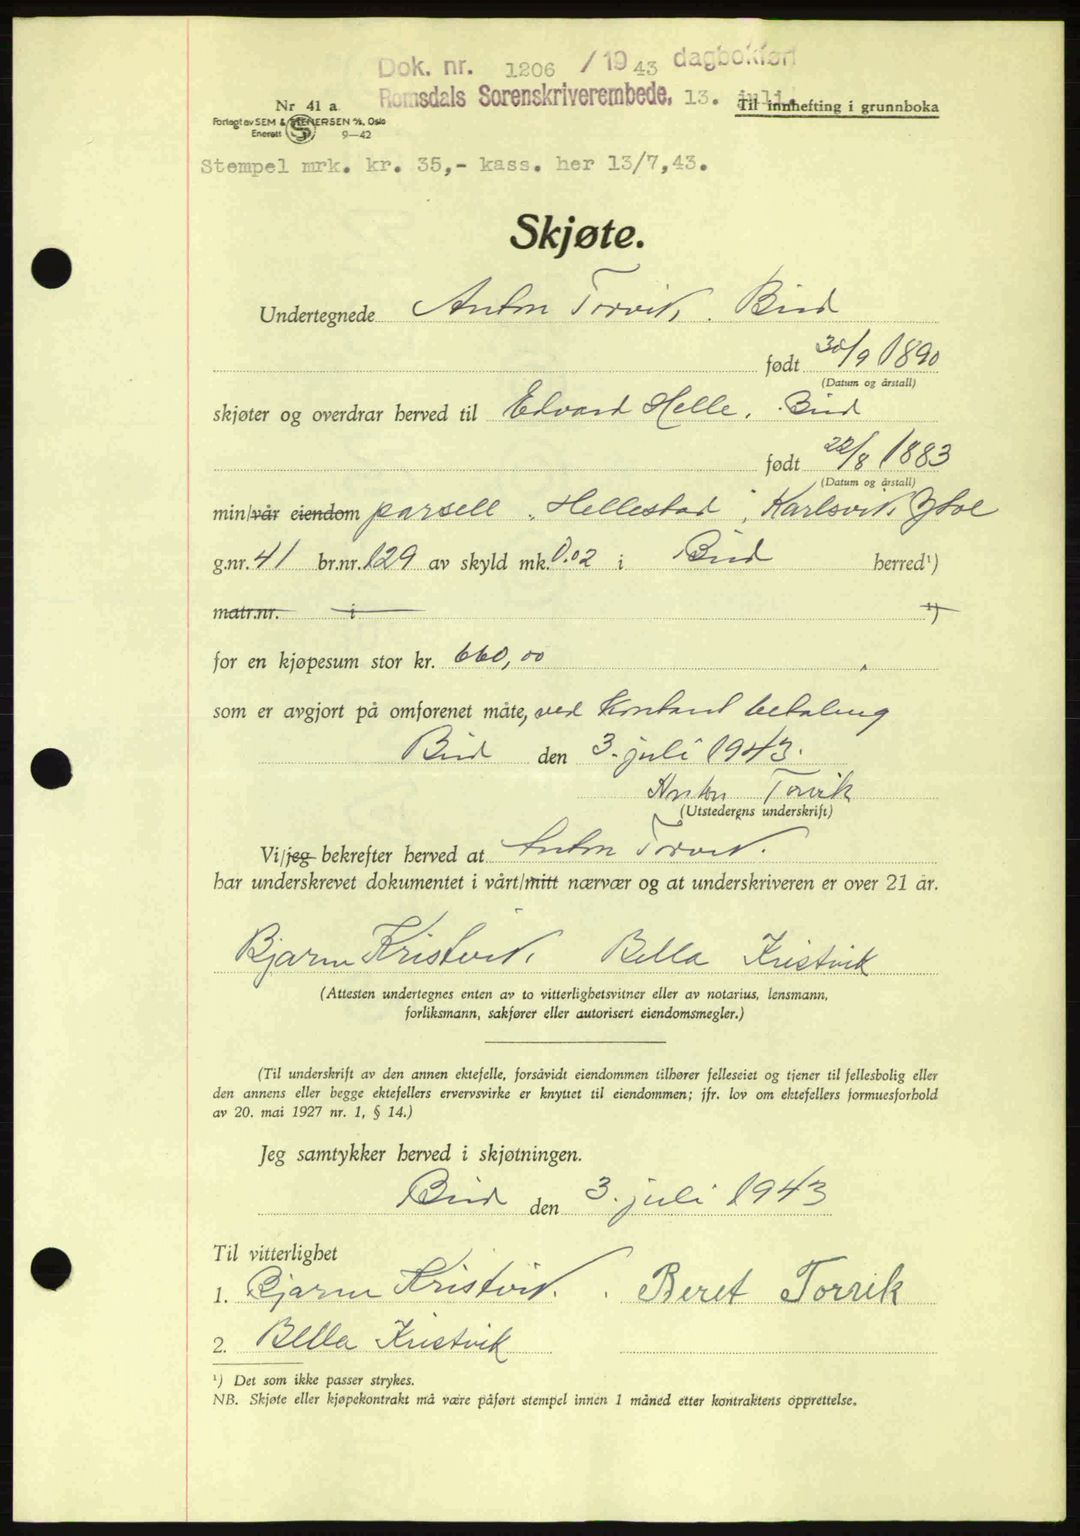 Dok. nr. 1206 / 1943 dagbokført
Romsdals Sorenskriverembede, 13. juli.
Nr 41 a
Til innhefting i grunnboka
Forlagt av SEM & STENERSEN A/S, Oslo
Enerett 9—42
Stempel mrk. kr. 35,- kass. her 13/7,43.
Skjøte.
Undertegnede Anton Torvik, Bud
født 30/9 1890
(Datum og årstall)
skjøter og overdrar herved til Edvard Helle, Bud
født 22/8 1883
(Datum og årstall)
min/vår eiendom parsell „Hellestad", Karlsvik,
g.nr. 41 br.nr. 129 av skyld mk. 0.02 i Bud herred¹)
matr.nr. i ¹)
for en kjøpesum stor kr. 660,00
som er avgjort på omforenet måte, ved kontant betaling
Bud den 3. juli 1943.
Anton Torvik
(Utstederens underskrift)
Vi/jeg bekrefter herved at Anton Torvik.
har underskrevet dokumentet i vårt/mitt nærvær og at underskriveren er over 21 år.
Bjarne Kristvik, Bella Kristvik
(Attesten undertegnes enten av to vitterlighetsvitner eller av notarius, lensmann,
forliksmann, sakfører eller autorisert eiendomsmegler.)
(Til underskrift av den annen ektefelle, forsåvidt eiendommen tilhører felleseiet og tjener til fellesbolig eller
den annens eller begge ektefellers ervervsvirke er knyttet til eiendommen; jfr. lov om ektefellers formuesforhold
av 20. mai 1927 nr. 1, § 14.)
Jeg samtykker herved i skjøtningen.
Bud den 3. juli 1943
Til vitterlighet
1. Bjarne Kristvik. Beret Torvik
2. Bella Kristvik
¹) Det som ikke passer strykes.
NB. Skjøte eller kjøpekontrakt må være påført stempel innen 1 måned etter kontraktens opprettelse.